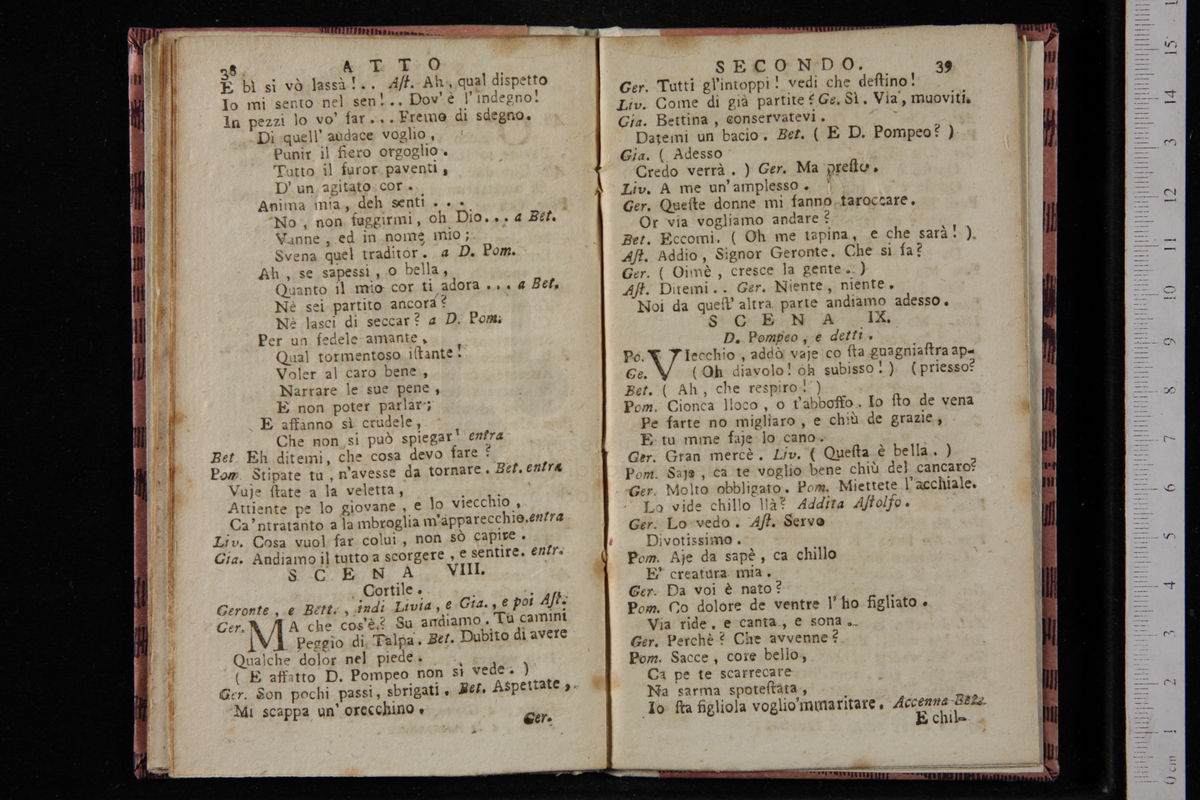 38 ATTO
E bì si vò lassà!.. Aſt. Ah, qual dispetto
Io mi sento nel sen!.. Dov'è l'indegno!
In pezzi lo vo' far... Fremo di sdegno.
Di quell' audace voglio,
Punir il fiero orgoglio.
Tutto il furor paventi,
D' un agitato cor.
Anima mia, deh senti...
No, non fuggirmi, oh Dio... a Bet.
Vanne, ed in nome mio;
Svena quel traditor. a D. Pom.
Ah, se sapessi, o bella,
Quanto il mio cor ti adora... a Bet.
Nè sei partito ancora?
Nè lasci di seccar? a D. Pom.
Per un fedele amante,
Qual tormentoso iſtante!
Voler al caro bene,
Narrare le sue pene,
E non poter parlar;
E affanno sì crudele,
Che non si può spiegar! entra
Bet. Eh ditemi, che cosa devo fare?
Pom. Stipate tu, n'avesse da tornare. Bet. entra
Vuje ſtate a la veletta,
Attiente pe lo giovane, e lo viecchio,
Ca'ntratanto a la mbroglia m'apparecchio. entra
Liv. Cosa vuol far colui, non sò capire.
Gia. Andiamo il tutto a scorgere, e sentire. entr.
SCENA VIII.
Cortile.
Geronte, e Bett., indi Livia, e Gia., e poi Aſt.
Ger. MA che cos'è? Su andiamo. Tu camini
Peggio di Talpa. Bet. Dubito di avere
Qualche dolor nel piede.
( E affatto D. Pompeo non si vede. )
Ger. Son pochi passi, sbrigati. Bet. Aspettate,
Mi scappa un' orecchino.
Ger.
SECONDO. 39
Ger. Tutti gl'intoppi! vedi che deſtino!
Liv. Come di già partite? Ge. Sì. Via, muoviti.
Gia. Bettina, conservatevi.
Datemi un bacio. Bet. ( E D. Pompeo? )
Gia. ( Adesso
Credo verrà. ) Ger. Ma preſto.
Liv. A me un'amplesso.
Ger. Queſte donne mi fanno taroccare.
Or via vogliamo andare?
Bet. Eccomi. ( Oh me tapina, e che sarà! )
Aſt. Addio, Signor Geronte. Che si fa?
Ger. ( Oimè, cresce la gente. )
Aſt. Ditemi.. Ger. Niente, niente.
Noi da queſt' altra parte andiamo adesso.
SCENA IX.
D. Pompeo, e detti.
Po. VIecchio, addò vaje co ſta guagniaſtra ap-
Ge. ( Oh diavolo! oh subisso! ) (priesso?
Bet. ( Ah, che respiro! )
Pom. Cionca lloco, o t'abboffo. Io ſto de vena
Pe farte no migliaro, e chiù de grazie,
E tu mme faje lo cano.
Ger. Gran mercè. Liv. ( Queſta è bella. )
Pom. Saje, ca te voglio bene chiù del cancaro?
Ger. Molto obbligato. Pom. Miettete l'acchiale.
Lo vide chillo llà? Addita Aſtolfo.
Ger. Lo vedo. Aſt. Servo
Divotissimo.
Pom. Aje da sapè, ca chillo
E' creatura mia.
Ger. Da voi è nato?
Pom. Co dolore de ventre l'ho figliato.
Via ride, e canta, e sona.
Ger. Perchè? Che avvenne?
Pom. Sacce, core bello,
Ca pe te scarrecare
Na sarma spoteſtata,
Io ſta figliola voglio'mmaritare. Accenna Bet.
E chil-